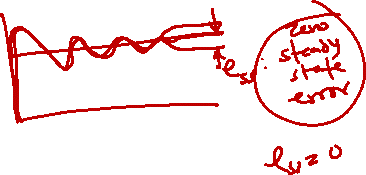 ess
zero
steady
state
error
ess = 0